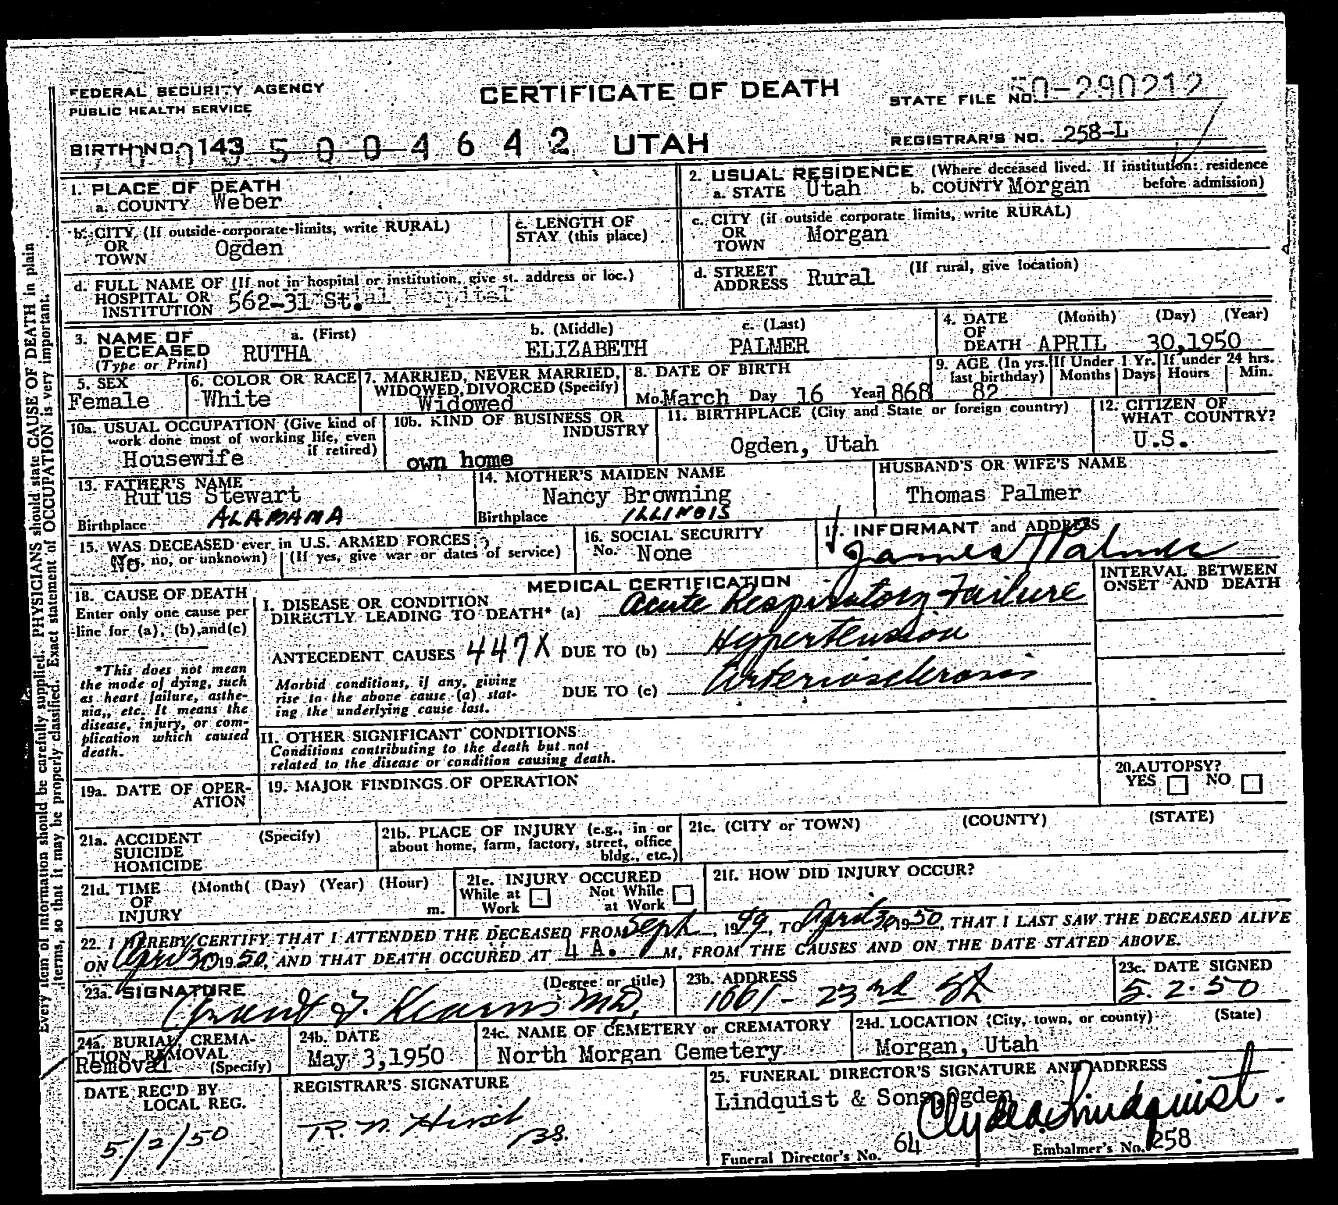 FEDERAL SECURITY AGENCY
PUBLIC HEALTH SERVICE
CERTIFICATE OF DEATH
STATE FILE NO. 50-290212
BIRTH NO. 143
5004642
UTAH
REGISTRAR'S NO. 258-L
1. PLACE OF DEATH
a. COUNTY Weber
2. USUAL RESIDENCE (Where deceased lived. If institution: residence before admission)
a. STATE Utah b. COUNTY Morgan
b. CITY (If outside corporate limits, write RURAL)
OR
TOWN
Ogden
c. LENGTH OF
STAY (this place)
c. CITY (if outside corporate limits, write RURAL)
OR
TOWN
Morgan
d. FULL NAME OF (If not in hospital or institution, give st. address or loc.)
HOSPITAL OR
INSTITUTION 562-31 St.
d. STREET
ADDRESS Rural (If rural, give location)
3. NAME OF
DECEASED
(Type or Print)
a. (First)
RUTHA
b. (Middle)
ELIZABETH
c. (Last)
PALMER
4. DATE
OF
DEATH
(Month) (Day) (Year)
APRIL 30,1950
5. SEX
Female
6. COLOR OR RACE
White
7. MARRIED, NEVER MARRIED,
WIDOWED, DIVORCED (Specify)
Widowed
8. DATE OF BIRTH
Mo. March Day 16 Year 1868
9. AGE (In yrs. last birthday)
82
If Under 1 Yr.
Months Days
If under 24 hrs.
Hours Min.
10a. USUAL OCCUPATION (Give kind of
work done most of working life, even
if retired)
Housewife
10b. KIND OF BUSINESS OR
INDUSTRY
own home
11. BIRTHPLACE (City and State or foreign country)
Ogden, Utah
12. CITIZEN OF
WHAT COUNTRY?
U.S.
13. FATHER'S NAME
Rufus Stewart
Birthplace ALABAMA
14. MOTHER'S MAIDEN NAME
Nancy Browning
Birthplace ILLINOIS
HUSBAND'S OR WIFE'S NAME
Thomas Palmer
15. WAS DECEASED ever in U.S. ARMED FORCES?
No, no, or unknown) (If yes, give war or dates of service)
16. SOCIAL SECURITY
No. None
17. INFORMANT and ADDRESS
James Palmer
18. CAUSE OF DEATH
Enter only one cause per
line for (a), (b), and (c)
*This does not mean
the mode of dying, such
as heart failure, asthe-
nia,, etc. It means the
disease, injury, or com-
plication which caused
death.
MEDICAL CERTIFICATION
I. DISEASE OR CONDITION
DIRECTLY LEADING TO DEATH* (a) Acute Respiratory Failure
ANTECEDENT CAUSES 447X DUE TO (b) Hypertension
Morbid conditions, if any, giving
rise to the above cause (a) stat-
ing the underlying cause last.
DUE TO (c) Arteriosclerosis
INTERVAL BETWEEN
ONSET AND DEATH
11. OTHER SIGNIFICANT CONDITIONS
Conditions contributing to the death but not
related to the disease or condition causing death.
19a. DATE OF OPER-
ATION
19. MAJOR FINDINGS OF OPERATION
20. AUTOPSY?
YES NO
21a. ACCIDENT (Specify)
SUICIDE
HOMICIDE
21b. PLACE OF INJURY (e.g., in or
about home, farm, factory, street, office
bldg., etc.)
21c. (CITY or TOWN) (COUNTY) (STATE)
21d. TIME (Month( (Day) (Year) (Hour)
OF
INJURY m.
21e. INJURY OCCURED
While at Work Not While at Work
21f. HOW DID INJURY OCCUR?
22. I HEREBY CERTIFY THAT I ATTENDED THE DECEASED FROM Sept, 1949, TO April 30 1950, THAT I LAST SAW THE DECEASED ALIVE
ON April 30 1950, AND THAT DEATH OCCURED AT 4 A. M, FROM THE CAUSES AND ON THE DATE STATED ABOVE.
23a. SIGNATURE (Degree or title)
Kearns MD.
23b. ADDRESS
1061 - 23rd St
23c. DATE SIGNED
5.2.50
24a. BURIAL, CREMA-
TION, REMOVAL
(Specify)
Removal
24b. DATE
May 3,1950
24c. NAME OF CEMETERY or CREMATORY
North Morgan Cemetery
24d. LOCATION (City, town, or county) (State)
Morgan, Utah
DATE REC'D BY
LOCAL REG.
5/2/50
REGISTRAR'S SIGNATURE
25. FUNERAL DIRECTOR'S SIGNATURE AND ADDRESS
Lindquist & Sons, Ogden
Clyde Lindquist.
Funeral Director's No. 64
Embalmer's No. 258
Every item of information should be carefully supplied. PHYSICIANS should state CAUSE OF DEATH in plain
terms, so that it may be properly classified. Exact statement of OCCUPATION is very important.